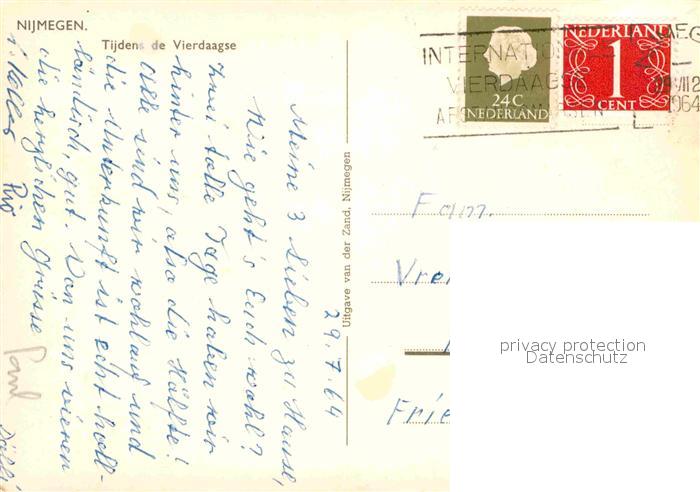 NIJMEGEN.
Tijdens de Vierdaagse
INTERNATIONALE
VIERDAAGSE
1964
24 C
NEDERLAND
NEDERLAND
1
CENT
Uitgave van der Zand, Nijmegen
29.7.64
Meine 3 Lieben zu Hause,
Wie geht's Euch wohl?
Zwei tolle Tage haben wir
hinter uns, also die Hälfte!
Alle sind wir wohlauf und
die Unterkunft ist echt holl-
ländisch, gut. Von uns vieren
die herzlichen Grüsse
Paul
Fam.
Vre
Frie
privacy protection
Datenschutz